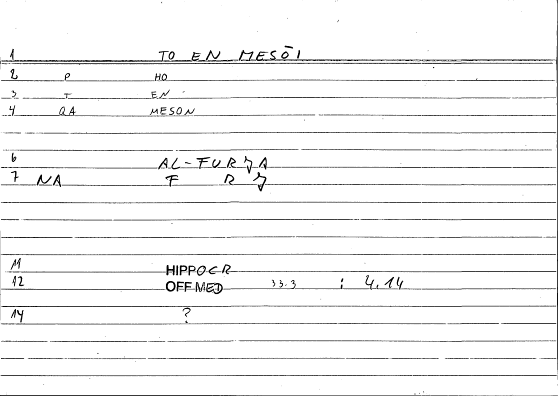 1 TO EN MESŌI
2 P HO
3 T EN
4 QA MESON
6 AL-FURǦA
7 NA F R Ǧ
11 HIPPOCR
12 OFF MED 33.3 : 4,14
14 ?